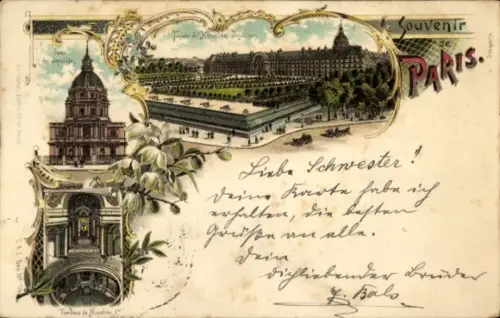 Souvenir
de
PARIS.
Façade de l'Hôtel des Invalides
Dôme
des Invalides
Liebe Schwester!
Deine Karte habe ich
erhalten, die besten
Grüße an alle.
Dein
dichliebender Bruder
Tombeau de Napoléon 1er